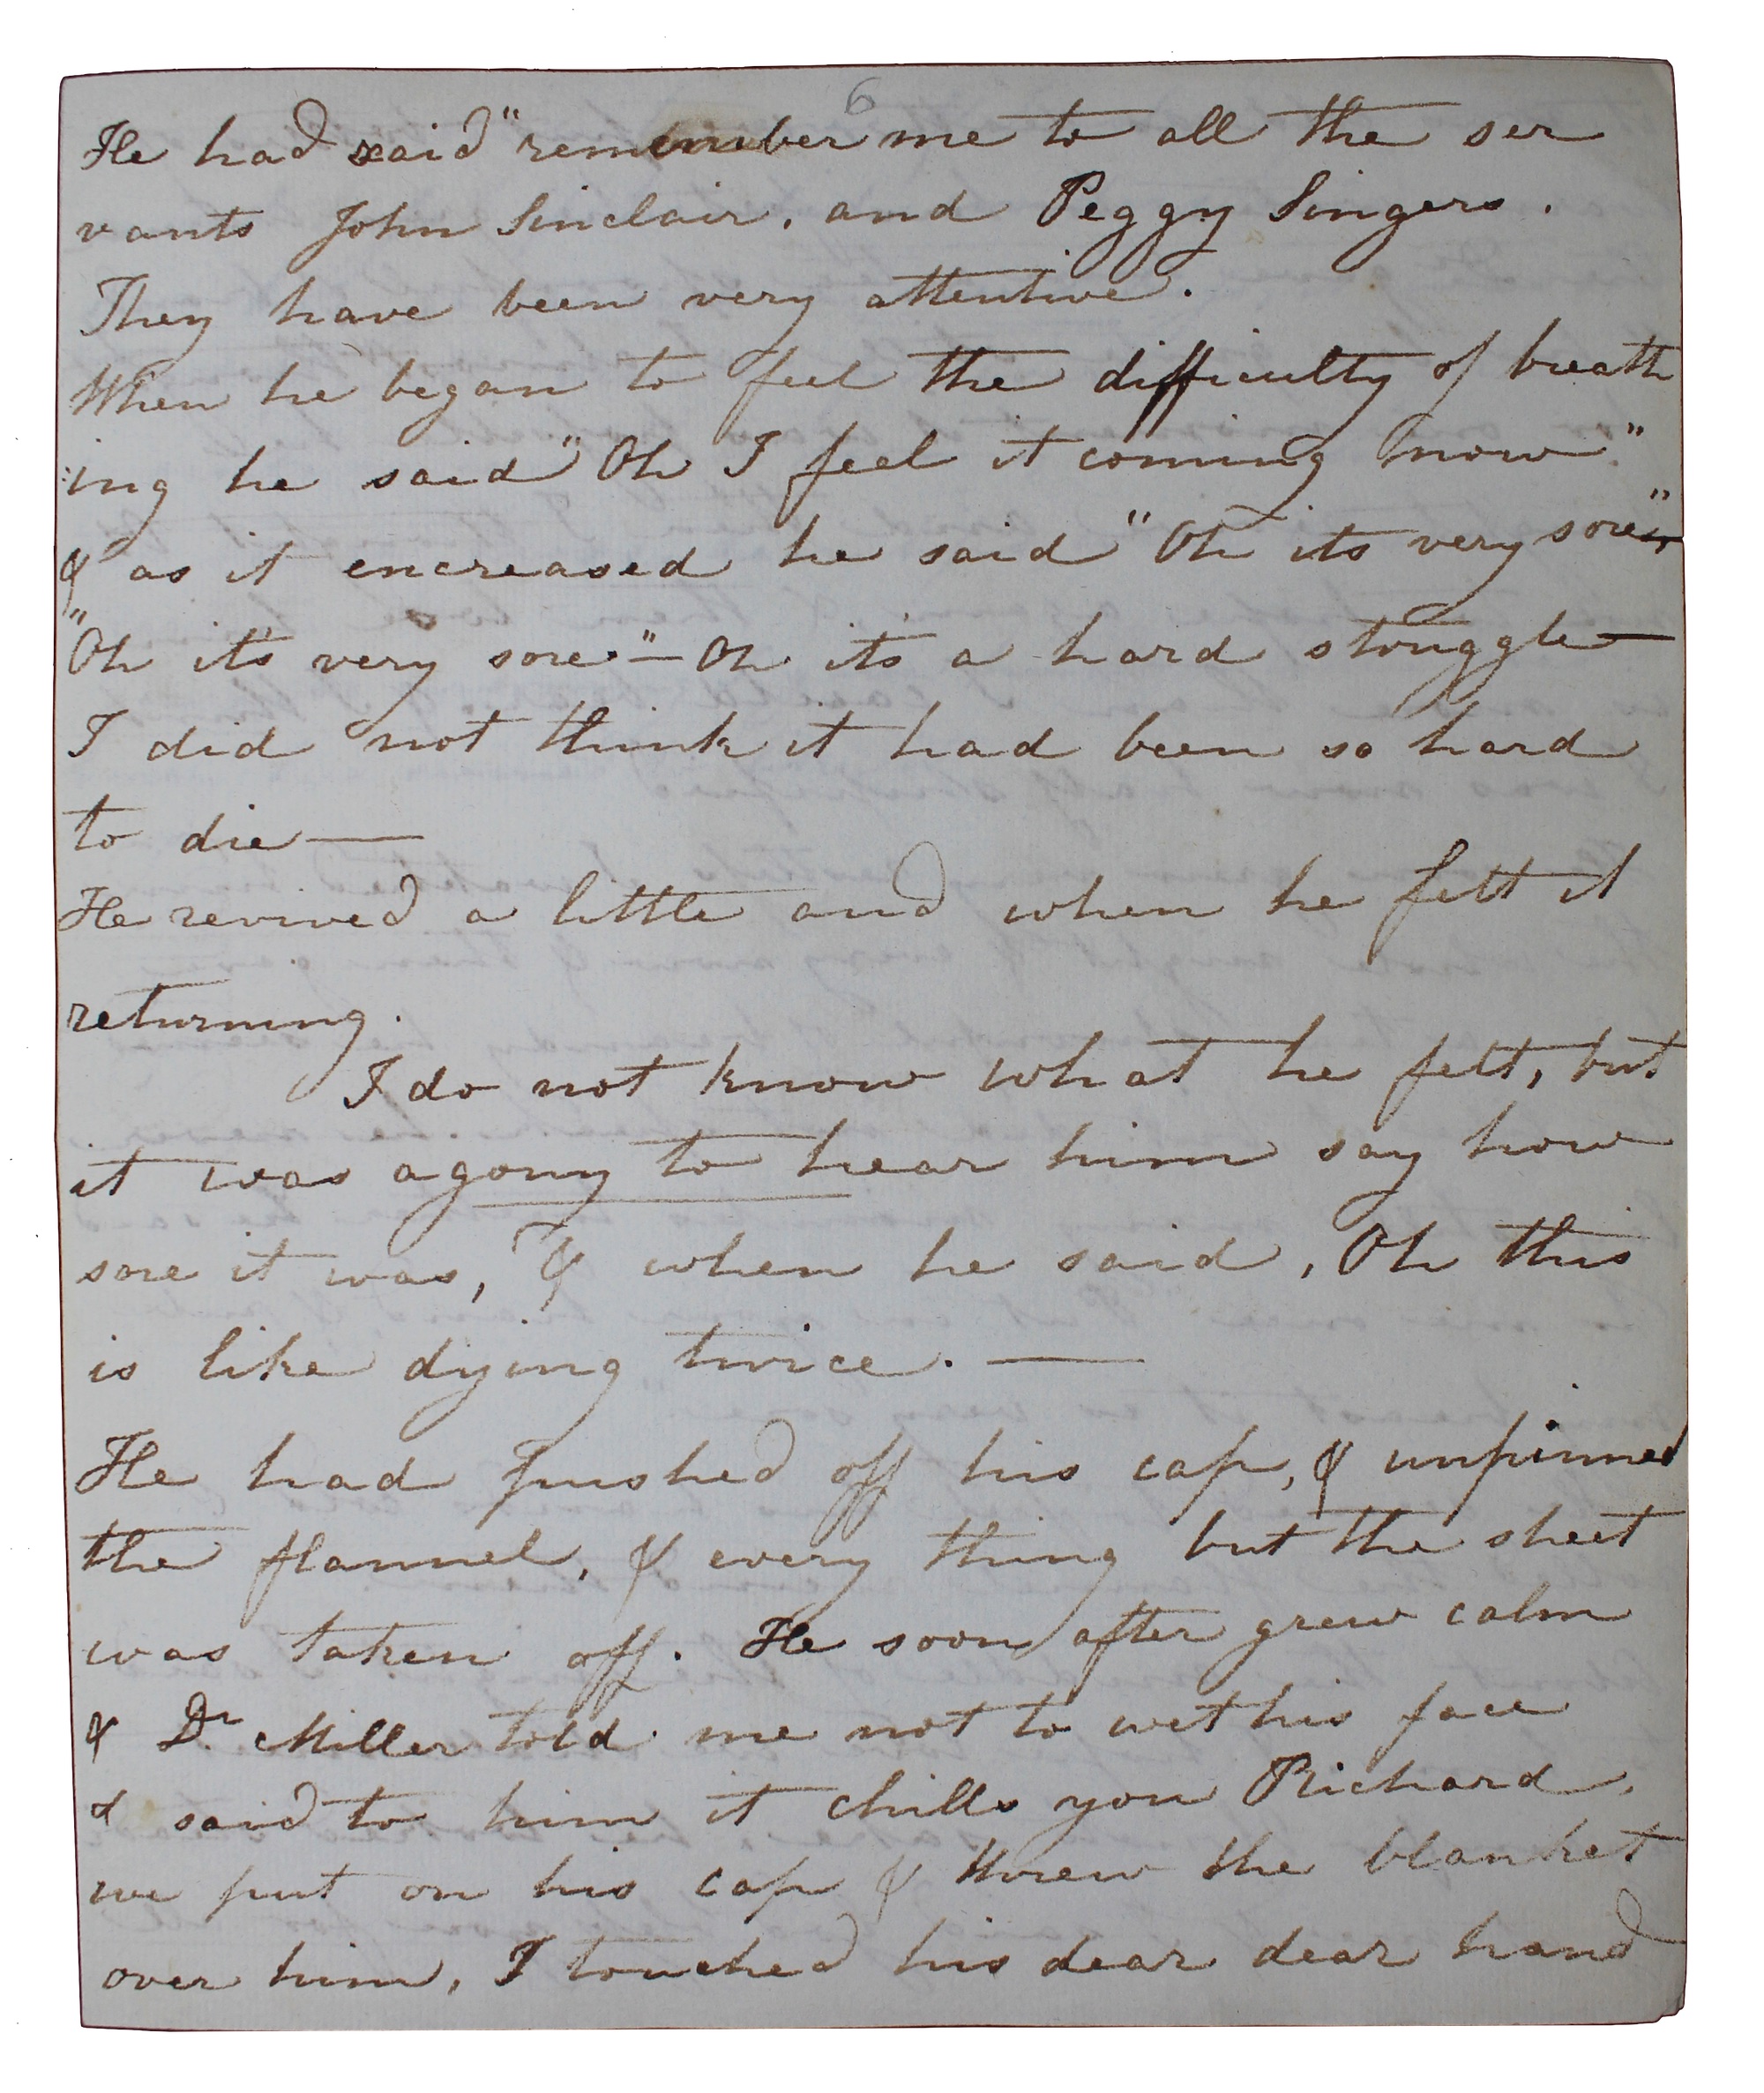 6
He had said "remember me to all the ser
vants John Sinclair, and Peggy Singers.
They have been very attentive.
When he began to feel the difficulty of breath
:ing he said "Oh I feel it coming now"
& as it encreased he said "Oh its very sore"
"Oh it's very sore."— Oh it's a hard struggle—
I did not think it had been so hard
to die—
He revived a little and when he felt it
returning.
I do not know what he felt, but
it was agony to hear him say how
sore it was, & when he said, Oh this
is like dying twice. —
He had pushed off his cap, & unpinned
the flannel, & every thing but the sheet
was taken off. He soon after grew calm
& Dr. Miller told me not to wet his face
& said to him it chills you Richard.
we put on his cap & threw the blanket
over him, I touched his dear dear hand